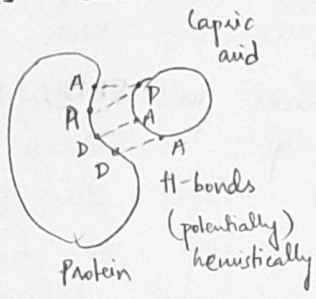 Capric
acid
A
D
A
A
D
A
D
H-bonds
(potentially)
hemistically
Protein